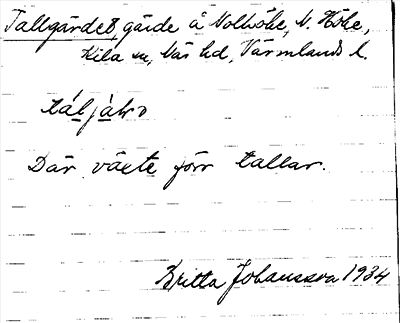 Tallgärdet, gärde å Nolhöke, N. Höke,
Kila sn, Näs hd, Värmlands l.
Där växte förr tallar.
Britta Johansson 1934